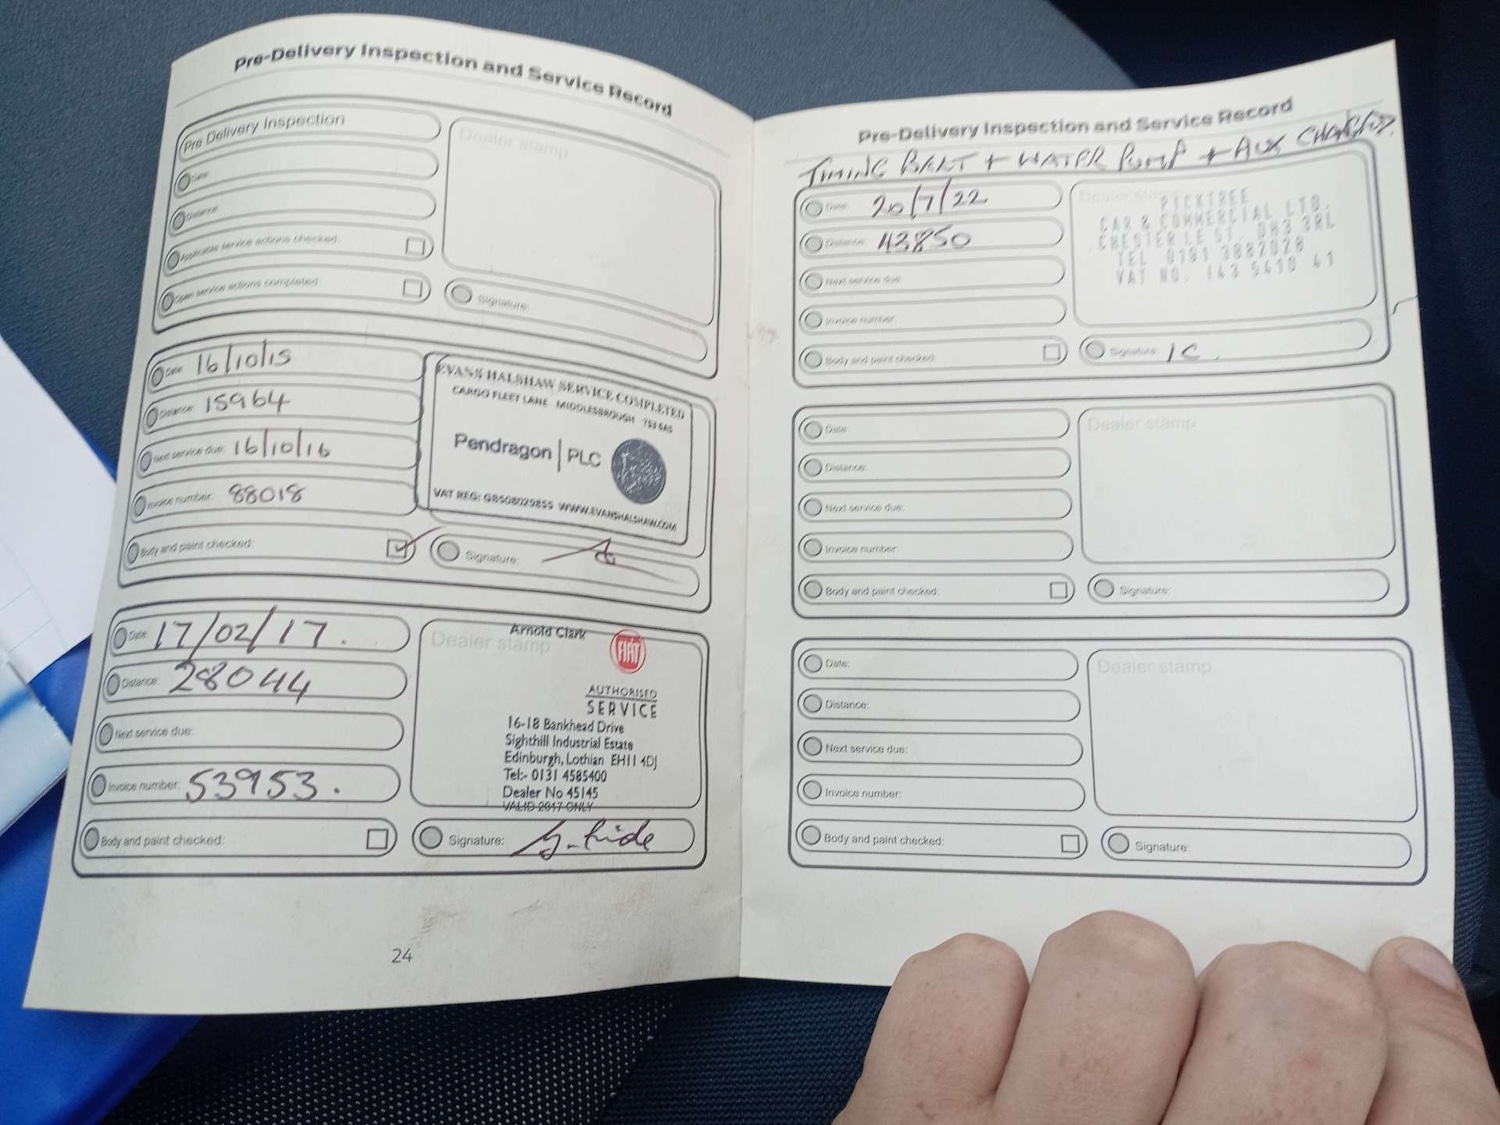 Pre-Delivery Inspection and Service Record
Pre Delivery Inspection
Date:
Distance:
Applicable service actions checked:
Open service actions completed:
Dealer stamp
Signature:
Date: 16/10/15
Distance: 15964
Next service due: 16/10/16
Invoice number: 88018
Body and paint checked:
EVANS HALSHAW SERVICE COMPLETED
CARGO FLEET LANE MIDDLESBROUGH
Pendragon PLC
VAT REG: GB508029855 WWW.EVANSHALSHAW.COM
Signature:
Date: 17/02/17.
Distance: 28044
Next service due:
Invoice number: 53953.
Body and paint checked:
Dealer stamp
Arnold Clark
FIAT
AUTHORISED
SERVICE
16-18 Bankhead Drive
Sighthill Industrial Estate
Edinburgh, Lothian EH11 4DJ
Tel:- 0131 4585400
Dealer No 45145
VALID 2017 ONLY
Signature:
24
Pre-Delivery Inspection and Service Record
TIMING BELT + WATER PUMP + AUX CHANGED.
Date: 20/7/22
Distance: 43850
Next service due:
Invoice number:
Body and paint checked:
Dealer stamp
PICKTREE
CAR & COMMERCIAL LTD.
CHESTER LE ST. DH3 3RL
TEL 0191 3882028
VAT NO. 143 5410 41
Signature: IC
Date:
Distance:
Next service due:
Invoice number:
Body and paint checked:
Dealer stamp
Signature:
Date:
Distance:
Next service due:
Invoice number:
Body and paint checked:
Dealer stamp
Signature: